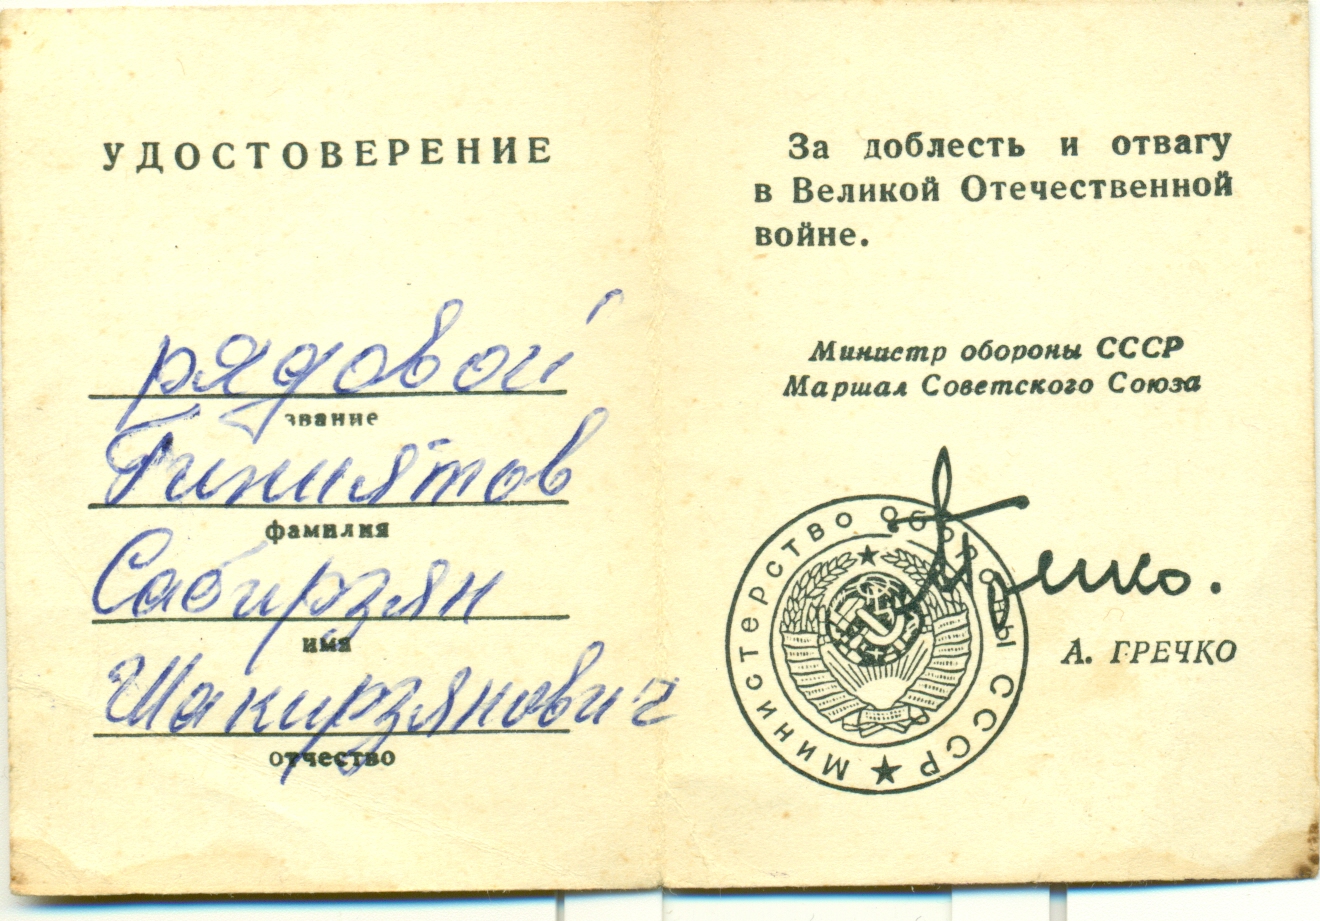 УДОСТОВЕРЕНИЕ
рядовой
звание
Гиниятов
фамилия
Сабирзян
имя
Шакирзянович
отчество
За доблесть и отвагу
в Великой Отечественной
войне.
Министр обороны СССР
Маршал Советского Союза
Министерство Обороны СССР
Гречко.
А. ГРЕЧКО